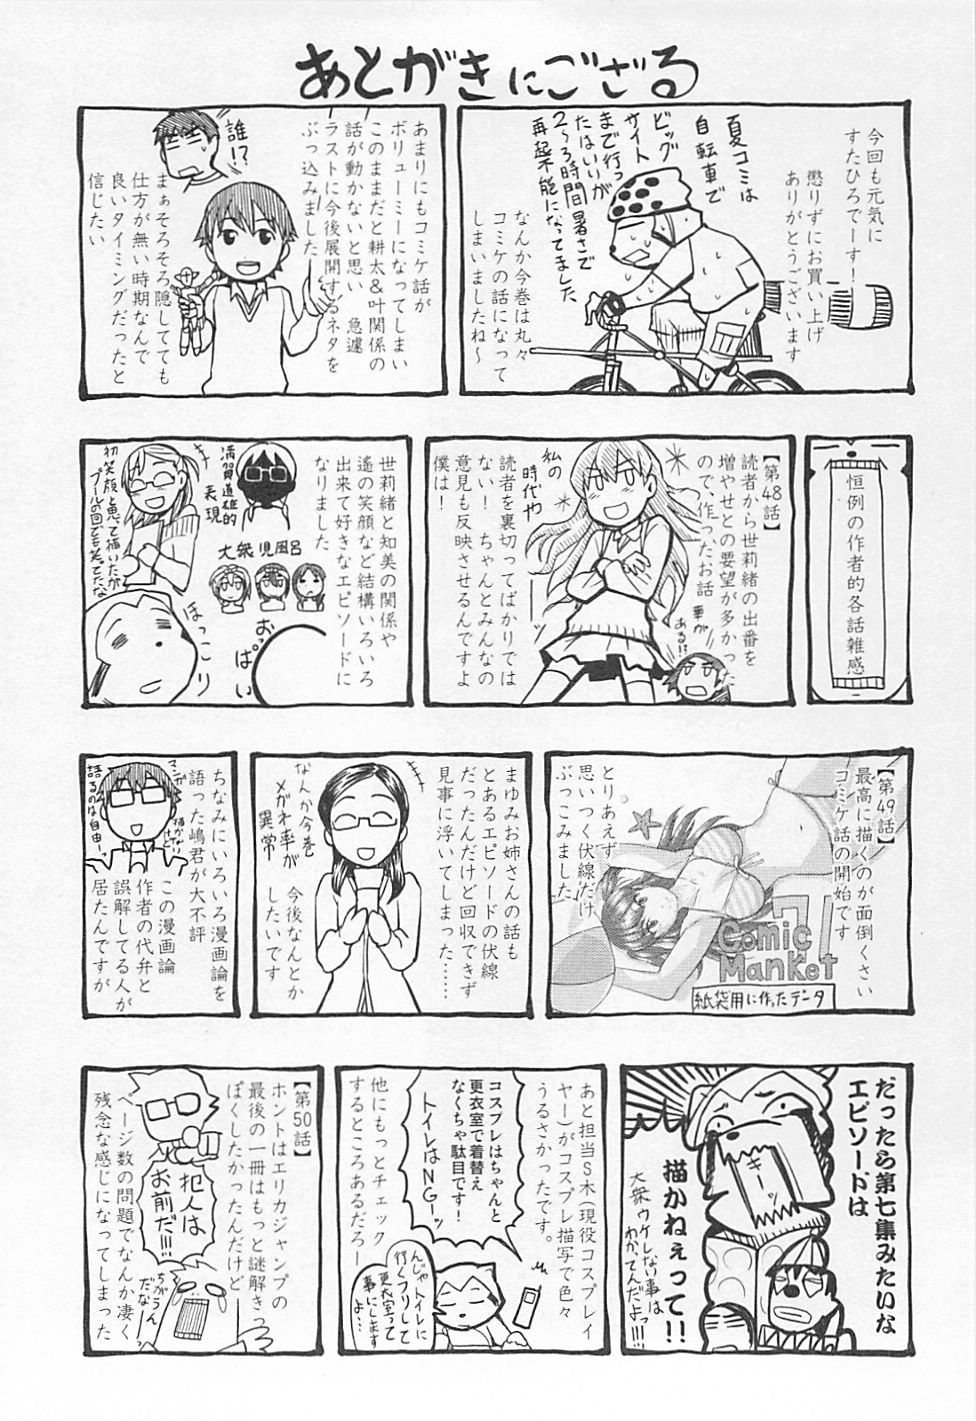 あとがきにござる
今回も元気に
すたひろでーす！
懲りずにお買い上げ
ありがとうございます
夏コミは
自転車で
ビッグ
サイト
まで行っ
たはいいが
2〜3時間暑さで
再起不能になってました
なんか今巻は丸々
コミケの話になって
しまいましたね〜
あまりにもコミケ話が
ボリューミーになってしまい
このままだと耕太＆叶関係の
話が動かないと思い　急遽
ラストに今後展開するネタを
ぶっ込みました
誰！？
まぁそろそろ隠してても
仕方が無い時期なんで
良いタイミングだったと
信じたい
恒例の作者的各話雑感
【第48話】
読者から世莉緒の出番を
増やせとの要望が多かった
ので、作ったお話
私の
時代や
華が
ある！？
読者を裏切ってばかりでは
ない！　ちゃんとみんなの
意見も反映させるんですよ
僕は！
世莉緒と知美の関係や
遙の笑顔など結構いろいろ
出来て好きなエピソードに
なりました
満賀道雄的
表現
初笑顔と思って描いたが
プールの回でも笑ってたな
大衆児風呂
おっぱい
ほっこり
【第49話】
最高に描くのが面倒くさい
コミケ話の開始です
とりあえず
思いつく伏線だけ
ぶっこみました
Comic
Market
71
紙袋用に作ったデータ
まゆみお姉さんの話も
とあるエピソードの伏線
だったんだけど回収できず
見事に浮いてしまった……
なんか今巻
メガネ率が
異常
今後なんとか
したいです
ちなみにいろいろ漫画論を
語った嶋君が大不評
マンガ
描かない
けど
語るのは自由ーっ
この漫画論
作者の代弁と
誤解してる人が
居たんですが
だったら第七集みたいな
エピソードは
描かねぇって！！
キーッ
大衆ウケしない事は
わかってんだよっ!!!
あと担当S木（現役コスプレイ
ヤー）がコスプレ描写で色々
うるさかったです。
コスプレはちゃんと
更衣室で着替え
なくちゃ駄目です！
トイレはNGーッ
他にもっとチェック
するところあるだろー
んじゃトイレに
行くフリして
更衣室って
事にします
よ…
【第50話】
ホントはエリカジャンプの
最後の一冊はもっと謎解きっ
ぽくしたかったんだけど
犯人は
お前だ!!!
ちがうん
だなーっ
ページ数の問題でなんか凄く
残念な感じになってしまった